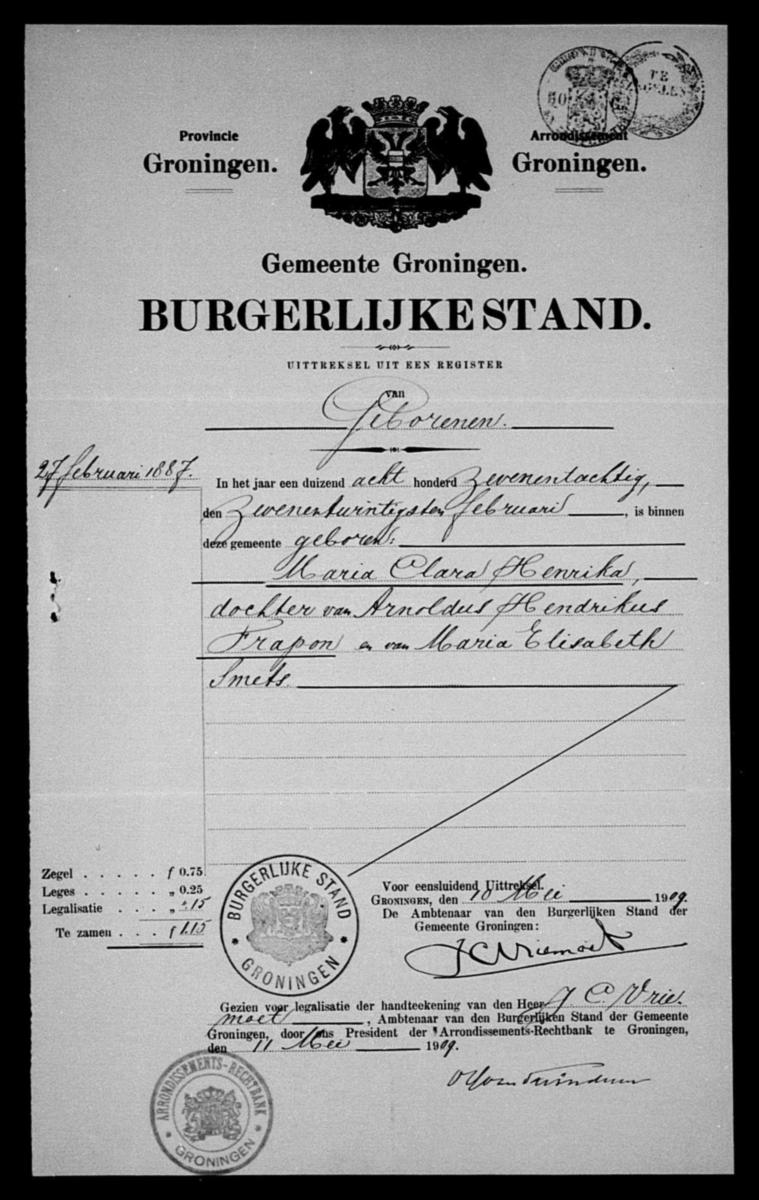 Provincie
Groningen.
Arrondissement
Groningen.
TE
50
Gemeente Groningen.
BURGERLIJKE STAND.
UITTREKSEL UIT EEN REGISTER
van
Geborenen.
27 februari 1887.
In het jaar een duizend acht honderd zevenentachtig,
den zevenentwintigsten februari, is binnen
deze gemeente geboren:
Maria Clara Henrika,
dochter van Arnoldus Hendrikus
Frapon en van Maria Elisabeth
Smets.
Zegel . . . . . f 0.75
Leges . . . . . „ 0.25
Legalisatie . . . „ .15
Te zamen . . . f 1.15
BURGERLIJKE STAND
GRONINGEN
Voor eensluidend Uittreksel.
GRONINGEN, den 10 Mei 1909.
De Ambtenaar van den Burgerlijken Stand der
Gemeente Groningen:
J C Vriemoet
Gezien voor legalisatie der handteekening van den Heer J. C. Vrie-
moet, Ambtenaar van den Burgerlijken Stand der Gemeente
Groningen, door ons President der Arrondissements-Rechtbank te Groningen,
den 11 Mei 1909.
ARRONDISSEMENTS-RECHTBANK
GRONINGEN